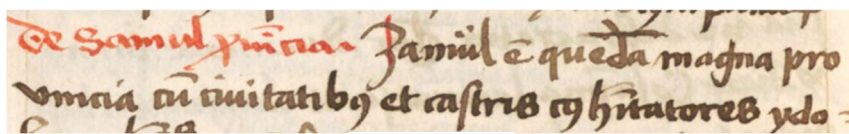 De Samul ꝓuĩcia Zamül ẽ quedã magna pro
uincia cũ ciuitatibꝯ et castris cꝯ hĩtatores ydo-